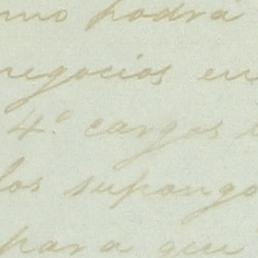 podrá
negocios en
4º cargos
los supongo
para que